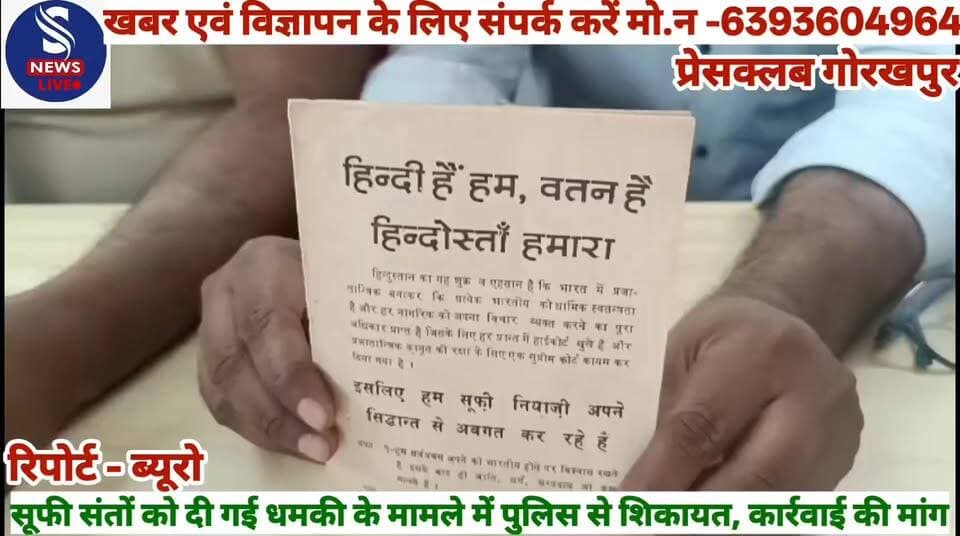 S
NEWS
LIVE
खबर एवं विज्ञापन के लिए संपर्क करें मो.न -6393604964
प्रेसक्लब गोरखपुर
हिन्दी हैं हम, वतन है
हिन्दोस्ताँ हमारा
हिन्दुस्तान का यह शुक्र व एहसान है कि भारत में प्रजा-
तान्त्रिक बनाकर कि प्रत्येक भारतीय को धार्मिक स्वतन्त्रता
है और हर नागरिक को अपना विचार व्यक्त करने का पूरा
अधिकार प्राप्त है जिसके लिए हर प्रान्त में हाईकोर्ट खुले है और
प्रजातान्त्रिक कानून की रक्षा के लिए एक सुप्रीम कोर्ट कायम कर
दिया गया है ।
इसलिए हम सूफी नियाज़ी अपने
सिद्धान्त से अवगत कर रहे हैं
१-हम सर्वप्रथम अपने को भारतीय होने पर विश्वास रखते
है इसके बाद ही जाति, धर्म,
मानते है ।
रिपोर्ट - ब्यूरो
सूफी संतों को दी गई धमकी के मामले में पुलिस से शिकायत, कार्रवाई की मांग